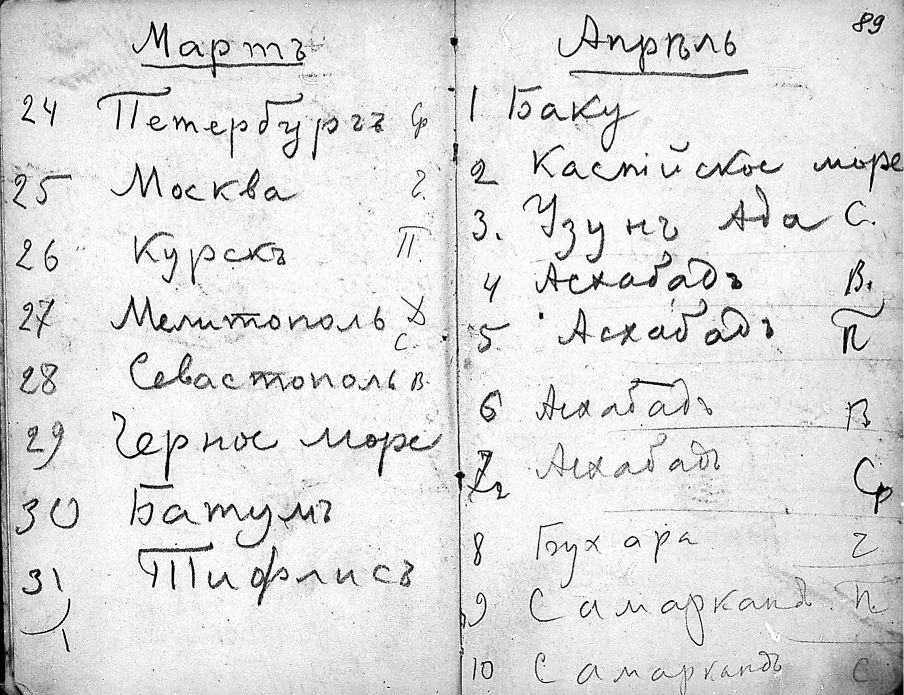 Мартъ
24 Петербургъ Ср
25 Москва Ч.
26 Курскъ П.
27 Мелитополь
С.
28 Севастополь В.
29 Черное море
30 Батумъ
31 Тифлисъ
89
Апрѣль
1 Баку
2 Каспійское море
3. Узунъ Ада С.
4 Асхабадъ В.
5 Асхабадъ П
6 Асхабадъ В
7 Асхабадъ Ср
8 Бухара Ч
9 Самаркандъ П.
10 Самаркандъ С